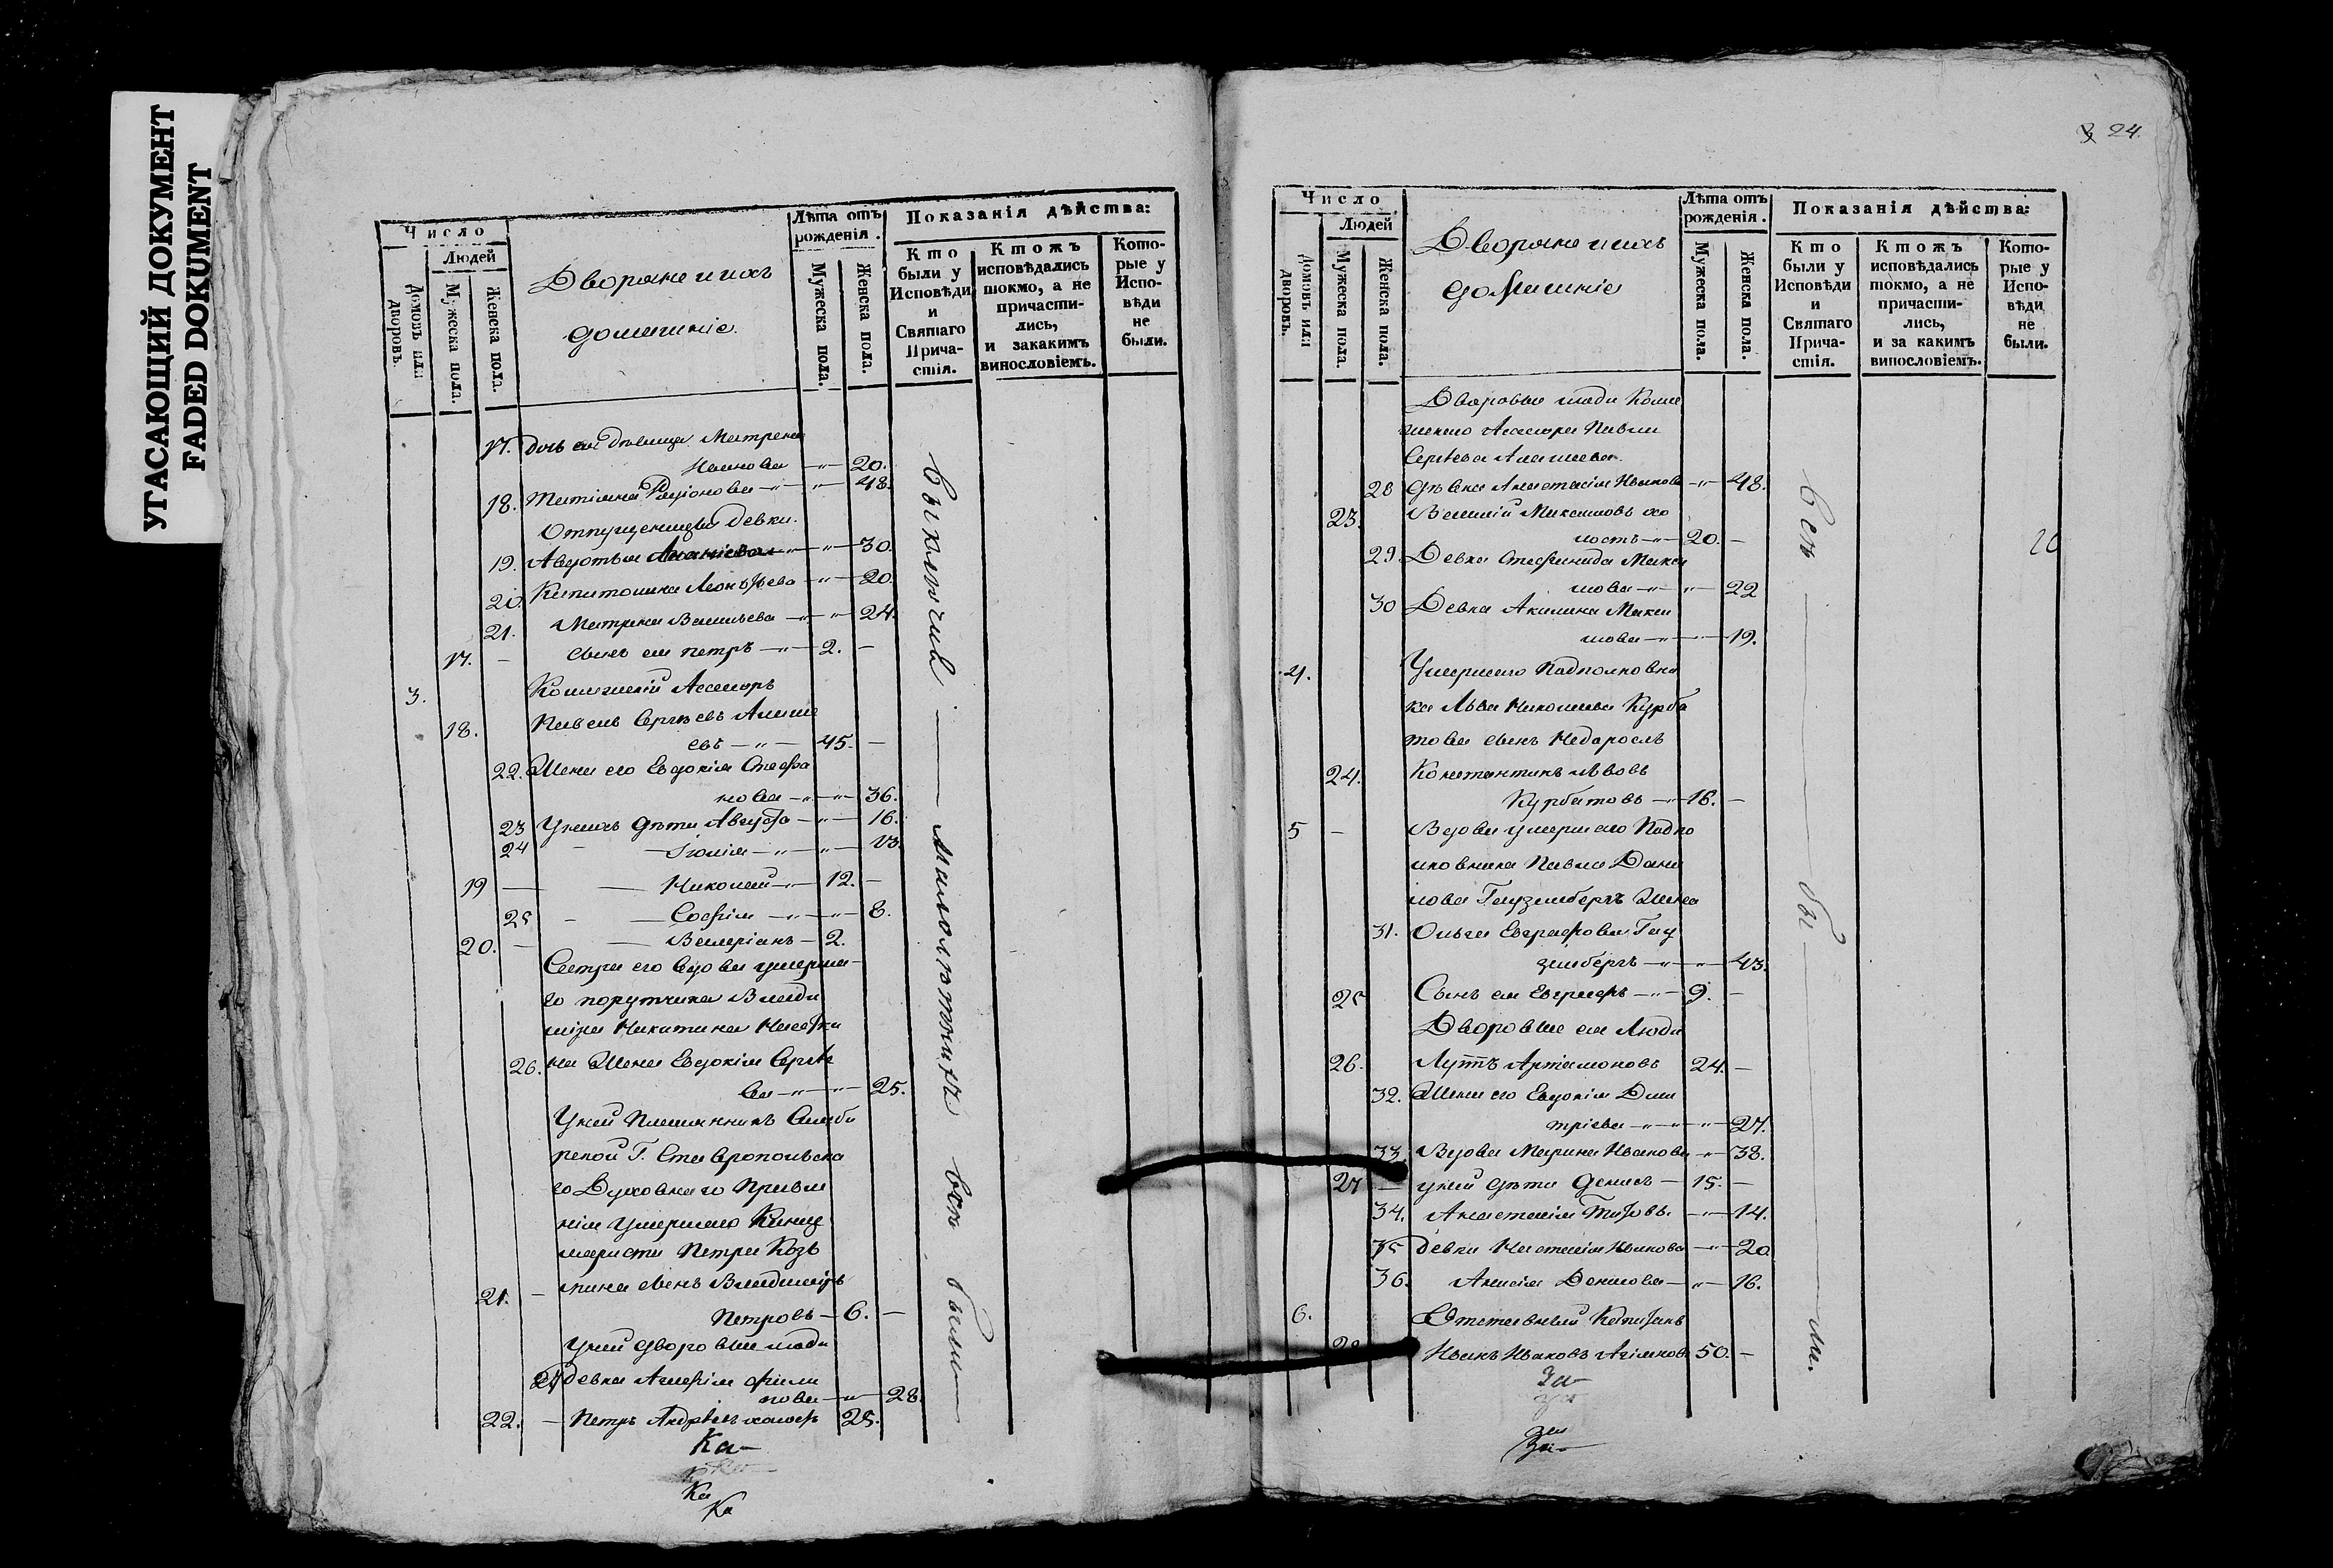 УГАСАЮЩИЙ ДОКУМЕНТ
FADED DOKUMENT
Число
Людей
Домовъ или дворовъ.
Мужеска пола.
Женска пола.
Дворяне и ихъ
домашніе.
Лѣта отъ рожденія.
Мужеска пола.
Женска пола.
Показанія дѣйства:
Кто были у Исповѣди и Святаго Прича-стія.
Ктожъ исповѣдались токмо, а не причасти-лись, и закакимъ винословіемъ.
Кото-рые у Испо-вѣди не были.
17. дочь ея девица Матрена
Иванова — " — 20.
18. Татіана — " — " — 48.
Отпущенныя девки.
19. Авдотья — " — 30.
20. Капитолина — " — 20.
21. Матрена Васильева — " — " — 24.
17. — сынъ ея петръ — " — 2. —
3. Колежскій Асесоръ
18. Павелъ Сергѣевъ
евъ — " — 45. —
22. Жена его Евдокія Стефа
нова — " — " — 36.
23 Унихъ дѣти Августа — " — 16.
24 — Іюлія — " — " — 13.
19 — — Николай — " — 12. —
25 — — Софія — " — " — 8.
20. — — Валеріанъ — 2.
Сестра его вдова умерша
го порутчика Влади
міра Никитина
26. на Жена Евдокія Сергѣ
ва — " — " — 25.
Уней Племянникъ Симби
рской Г. Ставропольска
го Духовнаго Правле
нія умершаго Канце
леристи Петра Козь
21. — мина сынъ Владиміръ
Петровъ — 6. —
Уней дворовые люди
27 девка филипова — " — 28.
22. — Петръ Андрѣевъ холостъ 25.
Ка-
Ка
Ка
Выключив — — малолѣтныхъ все были —
24.
Число
Людей
Домовъ или дворовъ.
Мужеска пола.
Женска пола.
Дворяне и ихъ
домашніе
Лѣта отъ рожденія.
Мужеска пола.
Женска пола.
Показанія дѣйства:
Кто были у Исповѣди и Святаго Прича-стія.
Ктожъ исповѣдались токмо, а не причасти-лись, и за какимъ винословіемъ.
Кото-рые у Испо-вѣди не были.
Дворовые люди Колле
жскаго Асесора Павла
Сергѣева
28 дѣвка Анастасія Иванова — " — 48.
23. Василій Максимовъ хо
лостъ — " — 20. —
29. Девка Стефанида Макси
мова — " — " — 22
30 Девка Акилина Макси
мова — " — " — 19.
4. Умершаго Подполковни
ка Льва Николаева Курба
това сынъ Недоросль
24. Констянтинъ Львовъ
Курбатовъ — " — 16. —
5 — Вдова умершаго Подпо
лковника Павла Дани
лова Жена
31. Ольга Евграфова
— " — " — 43.
25 Сынъ ея Евграфъ — " — 9. —
Дворовые ея люди
26. Артамоновъ 24. —
32. Жена его Евдокія Дми
тріева — " — " — 27.
33. Вдова Марина Иванова — " — 38.
27 — уней дѣти Денисъ — 15. —
34. Анастасія — " — 14.
35 девки Настасія Иванова — " — 20
36. Анисія Данилова — " — 16.
6. Отставный Капитанъ
28 Иванъ Ивановъ 50. —
За-
За-
Все — бы — ли.